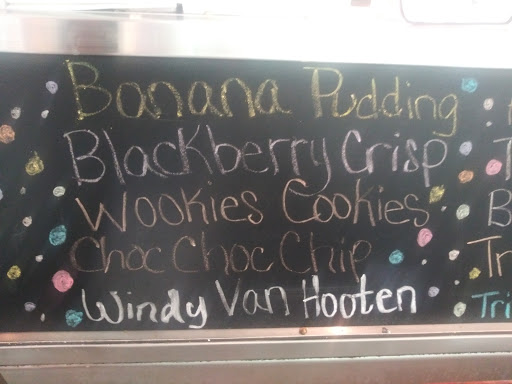 Banana Pudding
Blackberry Crisp
Wookies Cookies
Choc Choc Chip
Windy Van Hooten
B
Tr
Tri